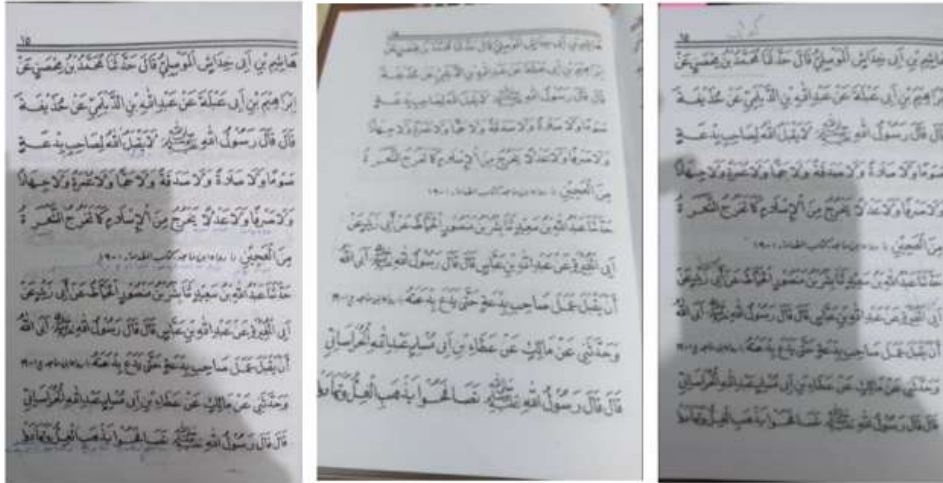 ١٥
هَاشِمِ بْنِ أَبِي خِدَاشٍ الْمَوْصِلِيُّ قَالَ حَدَّثَنَا مُحَمَّدُ بْنُ مِحْصَنٍ عَنْ
إِبْرَاهِيمَ بْنِ أَبِي عَبْلَةَ عَنْ عَبْدِ اللهِ بْنِ الدَّيْلَمِيِّ عَنْ حُذَيْفَةَ
قَالَ قَالَ رَسُوْلُ اللهِ ﷺ لَا يَقْبَلُ اللهُ لِصَاحِبِ بِدْعَةٍ
صَوْمًا وَلَا صَلَاةً وَلَا صَدَقَةً وَلَا حَجًّا وَلَا عُمْرَةً وَلَا جِهَادًا
وَلَا صَرْفًا وَلَا عَدْلًا يَخْرُجُ مِنَ الْإِسْلَامِ كَمَا تَخْرُجُ الشَّعَرَةُ
مِنَ الْعَجِيْنِ
حَدَّثَنَا عَبْدُ اللهِ بْنُ سَعِيْدٍ ثَنَا بِشْرُ بْنُ مَنْصُوْرٍ الْخَيَّاطُ عَنْ أَبِي زَيْدٍ عَنْ
أَبِي الْمُغِيْرَةِ عَنْ عَبْدِ اللهِ بْنِ عَبَّاسٍ قَالَ قَالَ رَسُوْلُ اللهِ ﷺ أَبَى اللهُ
أَنْ يَقْبَلَ عَمَلَ صَاحِبِ بِدْعَةٍ حَتَّى يَدَعَ بِدْعَتَهُ
وَحَدَّثَنِي عَنْ مَالِكٍ عَنْ عَطَاءِ بْنِ أَبِي مُسْلِمٍ عَبْدِ اللهِ الْخُرَاسَانِي
قَالَ قَالَ رَسُوْلُ اللهِ ﷺ تَصَافَحُوْا يَذْهَبِ الْغِلُّ وَتَهَادَوْا
هَاشِمِ بْنِ أَبِي خِدَاشٍ الْمَوْصِلِيُّ قَالَ حَدَّثَنَا مُحَمَّدُ بْنُ مِحْصَنٍ عَنْ
إِبْرَاهِيمَ بْنِ أَبِي عَبْلَةَ عَنْ عَبْدِ اللهِ بْنِ الدَّيْلَمِيِّ عَنْ حُذَيْفَةَ
قَالَ قَالَ رَسُوْلُ اللهِ ﷺ لَا يَقْبَلُ اللهُ لِصَاحِبِ بِدْعَةٍ
صَوْمًا وَلَا صَلَاةً وَلَا صَدَقَةً وَلَا حَجًّا وَلَا عُمْرَةً وَلَا جِهَادًا
وَلَا صَرْفًا وَلَا عَدْلًا يَخْرُجُ مِنَ الْإِسْلَامِ كَمَا تَخْرُجُ الشَّعَرَةُ
مِنَ الْعَجِيْنِ
حَدَّثَنَا عَبْدُ اللهِ بْنُ سَعِيْدٍ ثَنَا بِشْرُ بْنُ مَنْصُوْرٍ الْخَيَّاطُ عَنْ أَبِي زَيْدٍ عَنْ
أَبِي الْمُغِيْرَةِ عَنْ عَبْدِ اللهِ بْنِ عَبَّاسٍ قَالَ قَالَ رَسُوْلُ اللهِ ﷺ أَبَى اللهُ
أَنْ يَقْبَلَ عَمَلَ صَاحِبِ بِدْعَةٍ حَتَّى يَدَعَ بِدْعَتَهُ
وَحَدَّثَنِي عَنْ مَالِكٍ عَنْ عَطَاءِ بْنِ أَبِي مُسْلِمٍ عَبْدِ اللهِ الْخُرَاسَانِي
قَالَ قَالَ رَسُوْلُ اللهِ ﷺ تَصَافَحُوْا يَذْهَبِ الْغِلُّ وَتَهَادَوْا
١٥
هَاشِمِ بْنِ أَبِي خِدَاشٍ الْمَوْصِلِيُّ قَالَ حَدَّثَنَا مُحَمَّدُ بْنُ مِحْصَنٍ عَنْ
إِبْرَاهِيمَ بْنِ أَبِي عَبْلَةَ عَنْ عَبْدِ اللهِ بْنِ الدَّيْلَمِيِّ عَنْ حُذَيْفَةَ
قَالَ قَالَ رَسُوْلُ اللهِ ﷺ لَا يَقْبَلُ اللهُ لِصَاحِبِ بِدْعَةٍ
صَوْمًا وَلَا صَلَاةً وَلَا صَدَقَةً وَلَا حَجًّا وَلَا عُمْرَةً وَلَا جِهَادًا
وَلَا صَرْفًا وَلَا عَدْلًا يَخْرُجُ مِنَ الْإِسْلَامِ كَمَا تَخْرُجُ الشَّعَرَةُ
مِنَ الْعَجِيْنِ
حَدَّثَنَا عَبْدُ اللهِ بْنُ سَعِيْدٍ ثَنَا بِشْرُ بْنُ مَنْصُوْرٍ الْخَيَّاطُ عَنْ أَبِي زَيْدٍ عَنْ
أَبِي الْمُغِيْرَةِ عَنْ عَبْدِ اللهِ بْنِ عَبَّاسٍ قَالَ قَالَ رَسُوْلُ اللهِ ﷺ أَبَى اللهُ
أَنْ يَقْبَلَ عَمَلَ صَاحِبِ بِدْعَةٍ حَتَّى يَدَعَ بِدْعَتَهُ
وَحَدَّثَنِي عَنْ مَالِكٍ عَنْ عَطَاءِ بْنِ أَبِي مُسْلِمٍ عَبْدِ اللهِ الْخُرَاسَانِي
قَالَ قَالَ رَسُوْلُ اللهِ ﷺ تَصَافَحُوْا يَذْهَبِ الْغِلُّ وَتَهَادَوْا